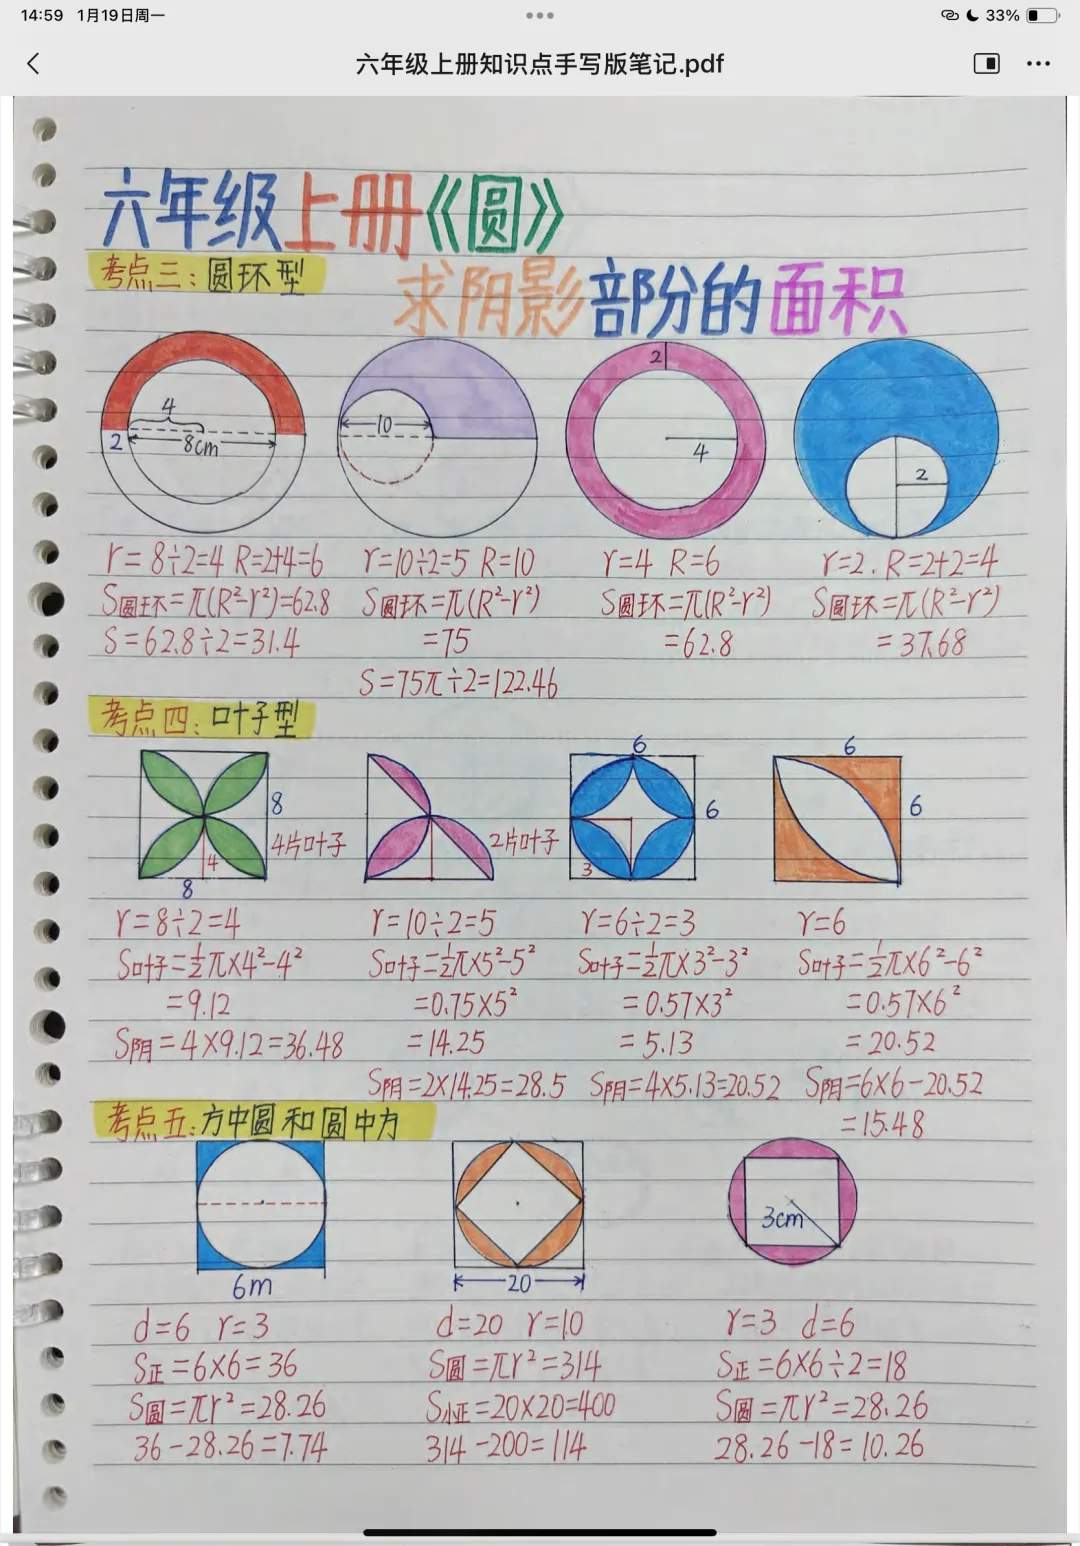 14:59 1月19日周一
33%
六年级上册知识点手写版笔记.pdf
六年级上册《圆》
考点三:圆环型
求阴影部分的面积
4
2
8cm
10
2
4
2
r=8÷2=4 R=2+4=6
S圆环=π(R²-r²)=62.8
S=62.8÷2=31.4
r=10÷2=5 R=10
S圆环=π(R²-r²)
=75
S=75π÷2=122.46
r=4 R=6
S圆环=π(R²-r²)
=62.8
r=2. R=2+2=4
S圆环=π(R²-r²)
=37.68
考点四:叶子型
8
4片叶子
4
8
2片叶子
6
6
3
6
6
r=8÷2=4
S叶子=½π×4²-4²
=9.12
S阴=4×9.12=36.48
r=10÷2=5
S叶子=½π×5²-5²
=0.75×5²
=14.25
S阴=2×14.25=28.5
r=6÷2=3
S叶子=½π×3²-3²
=0.57×3²
=5.13
S阴=4×5.13=20.52
r=6
S叶子=½π×6²-6²
=0.57×6²
=20.52
S阴=6×6-20.52
=15.48
考点五:方中圆和圆中方
6m
20
3cm
d=6 r=3
S正=6×6=36
S圆=πr²=28.26
36-28.26=7.74
d=20 r=10
S圆=πr²=314
S小正=20×20=400
314-200=114
r=3 d=6
S正=6×6÷2=18
S圆=πr²=28.26
28.26-18=10.26